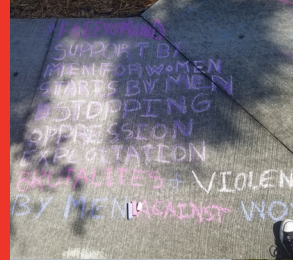 SUPPORT BY
MEN FOR WOMEN
STARTS BY MEN
STOPPING
OPPRESSION
EXPLOITATION
VIOLEN
BY MEN AGAINST WO